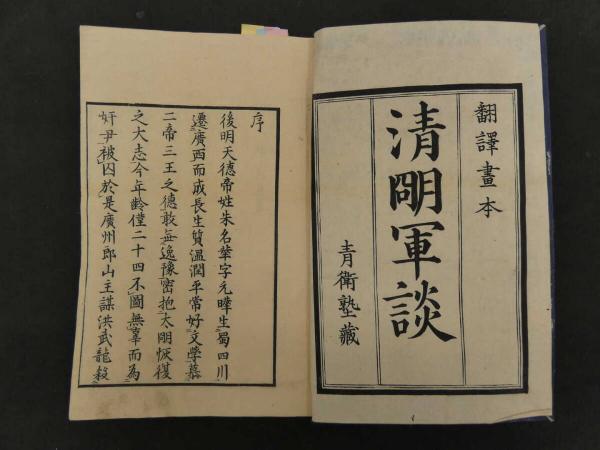 翻譯畫本
清朙軍談
青衛塾藏
序
後明天德帝姓朱名華字元曄生蜀四川
遷廣西而成長生質溫潤平常好文學慕
二帝三王之德敢無逸豫密抱太朙恢復
之大志今年齡僅二十四不圖無辜而為
奸尹被囚於是廣州郎山主謀洪武龍殺